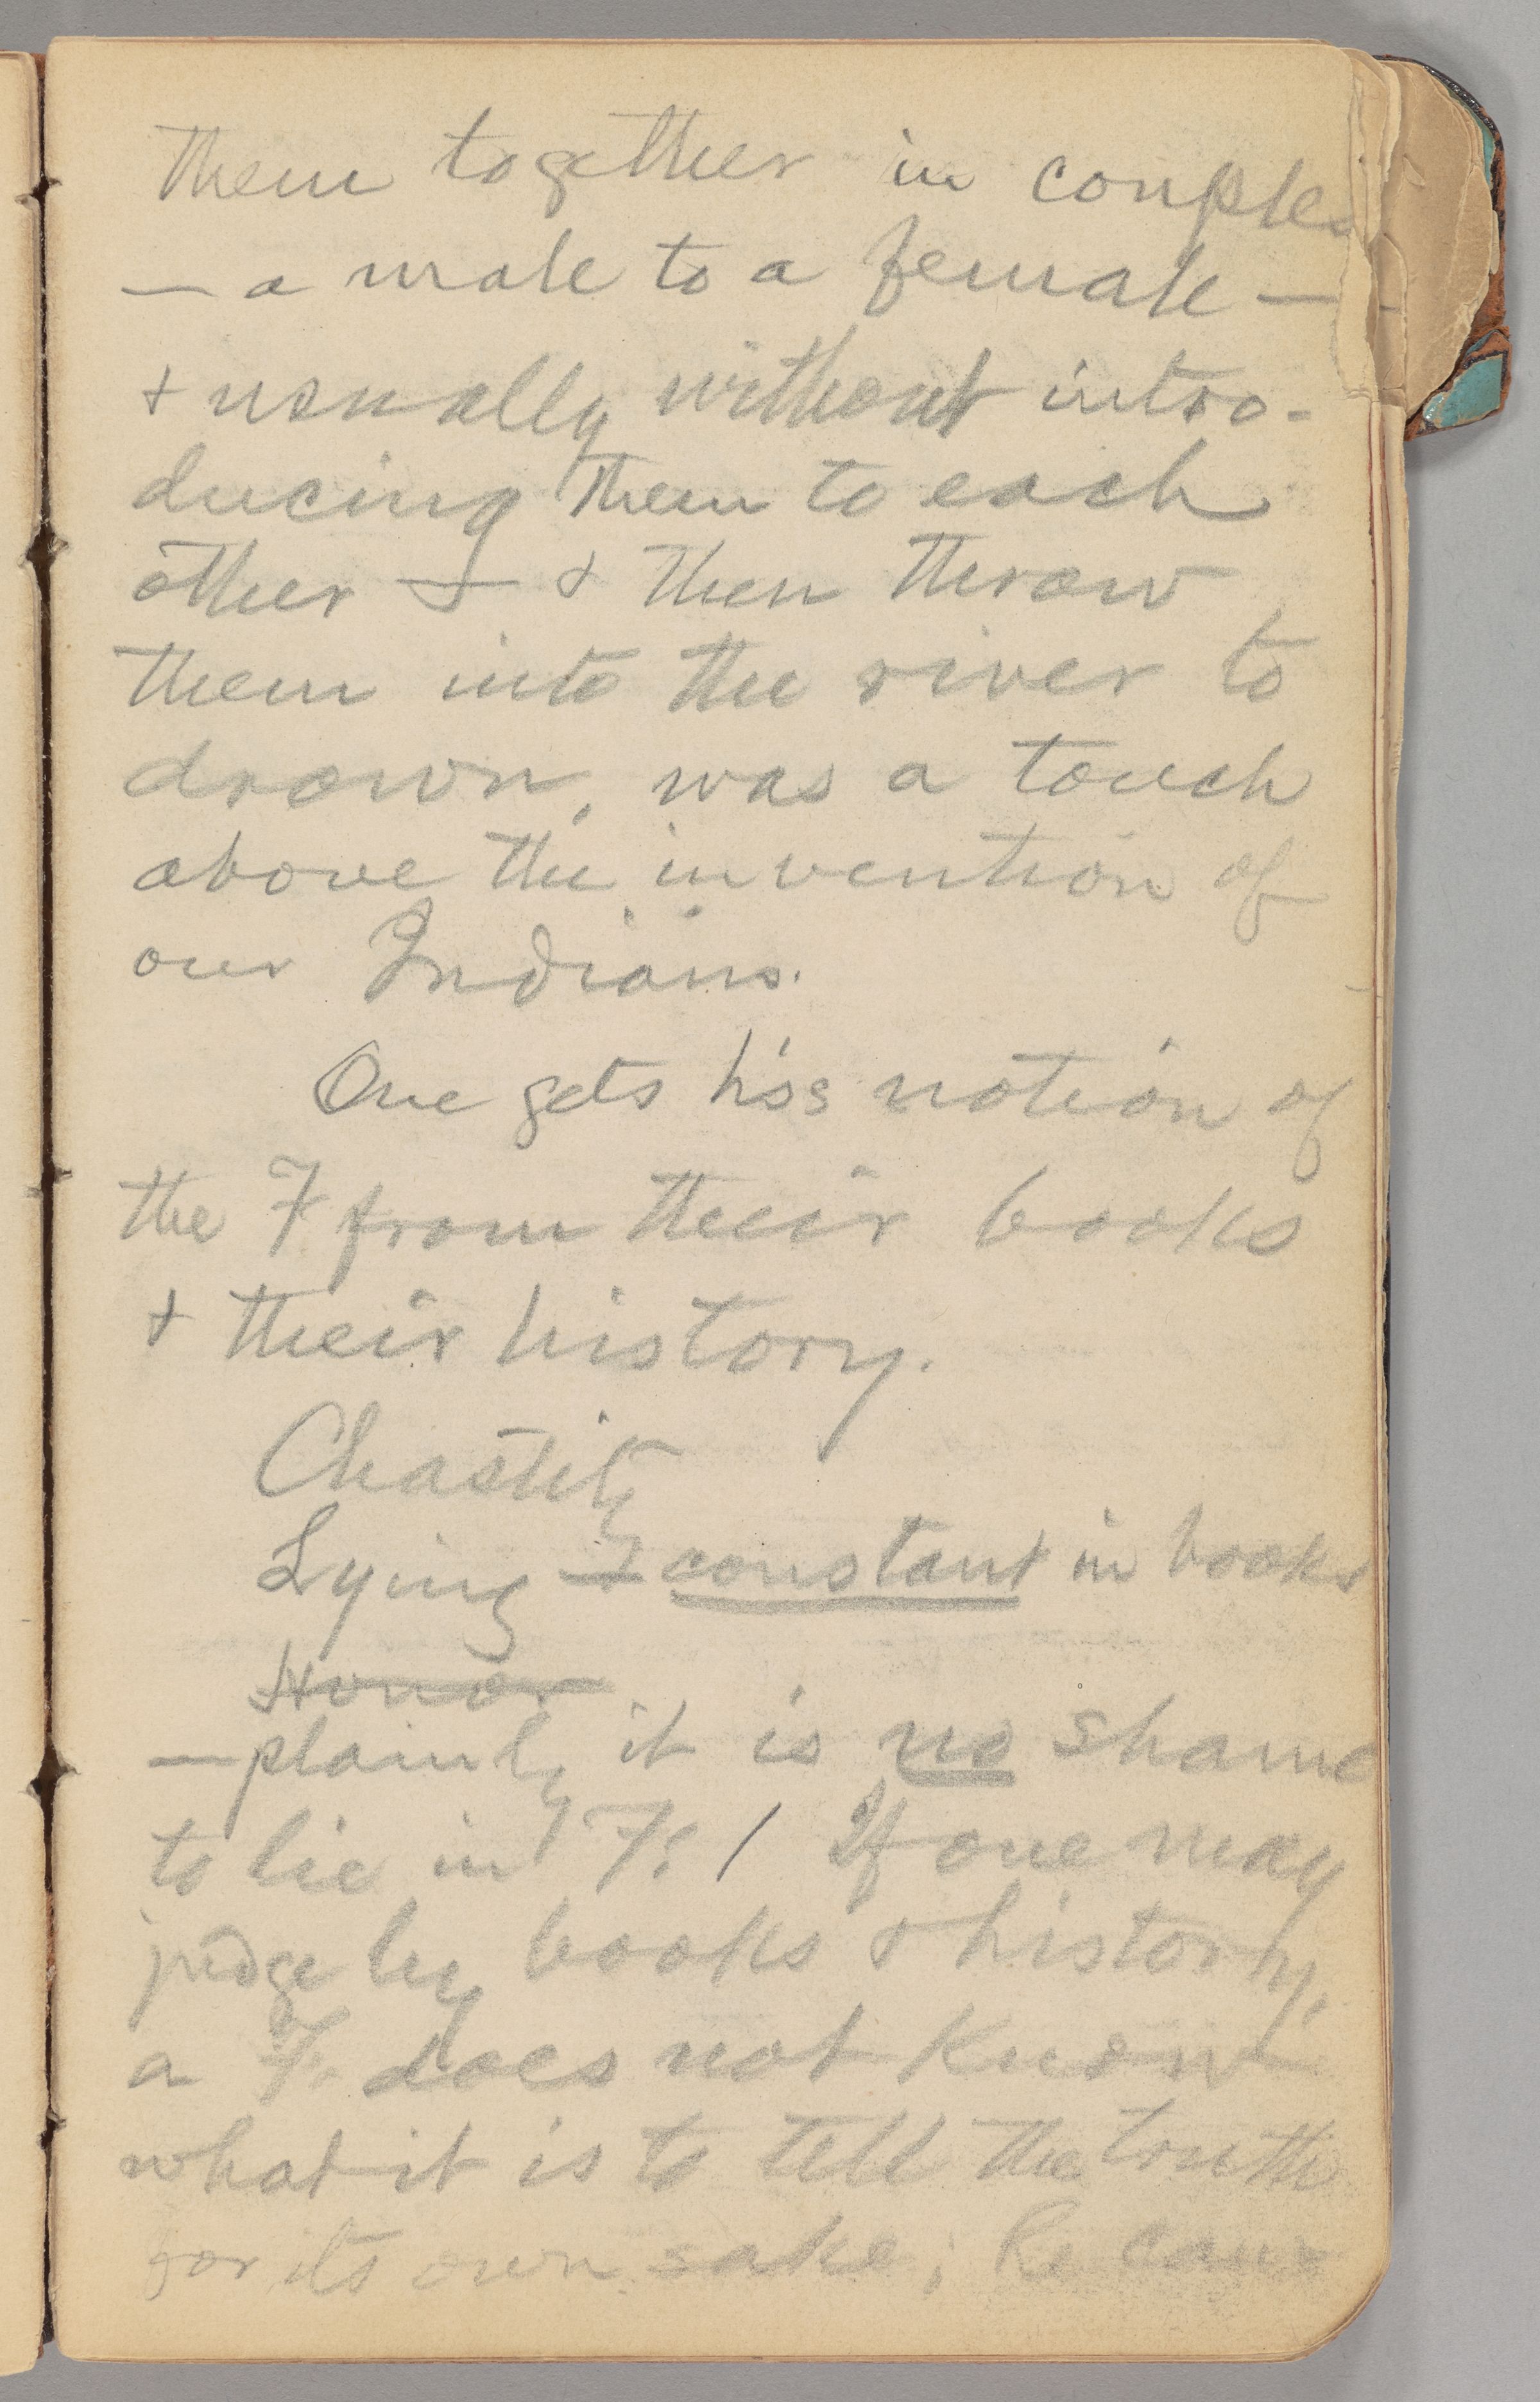 them together in couples
— a male to a female —
+ usually without intro-
ducing them to each
other — + then throw
them into the river to
drown, was a touch
above the invention of
our Indians.
One gets his notion of
the F from their books
+ their history.
Chastity
Lying — constant in books
Honor
— plainly it is no shame
to lie in F. / If one may
judge by books + history,
a F. does not know
what it is to tell the truth
for its own sake; he